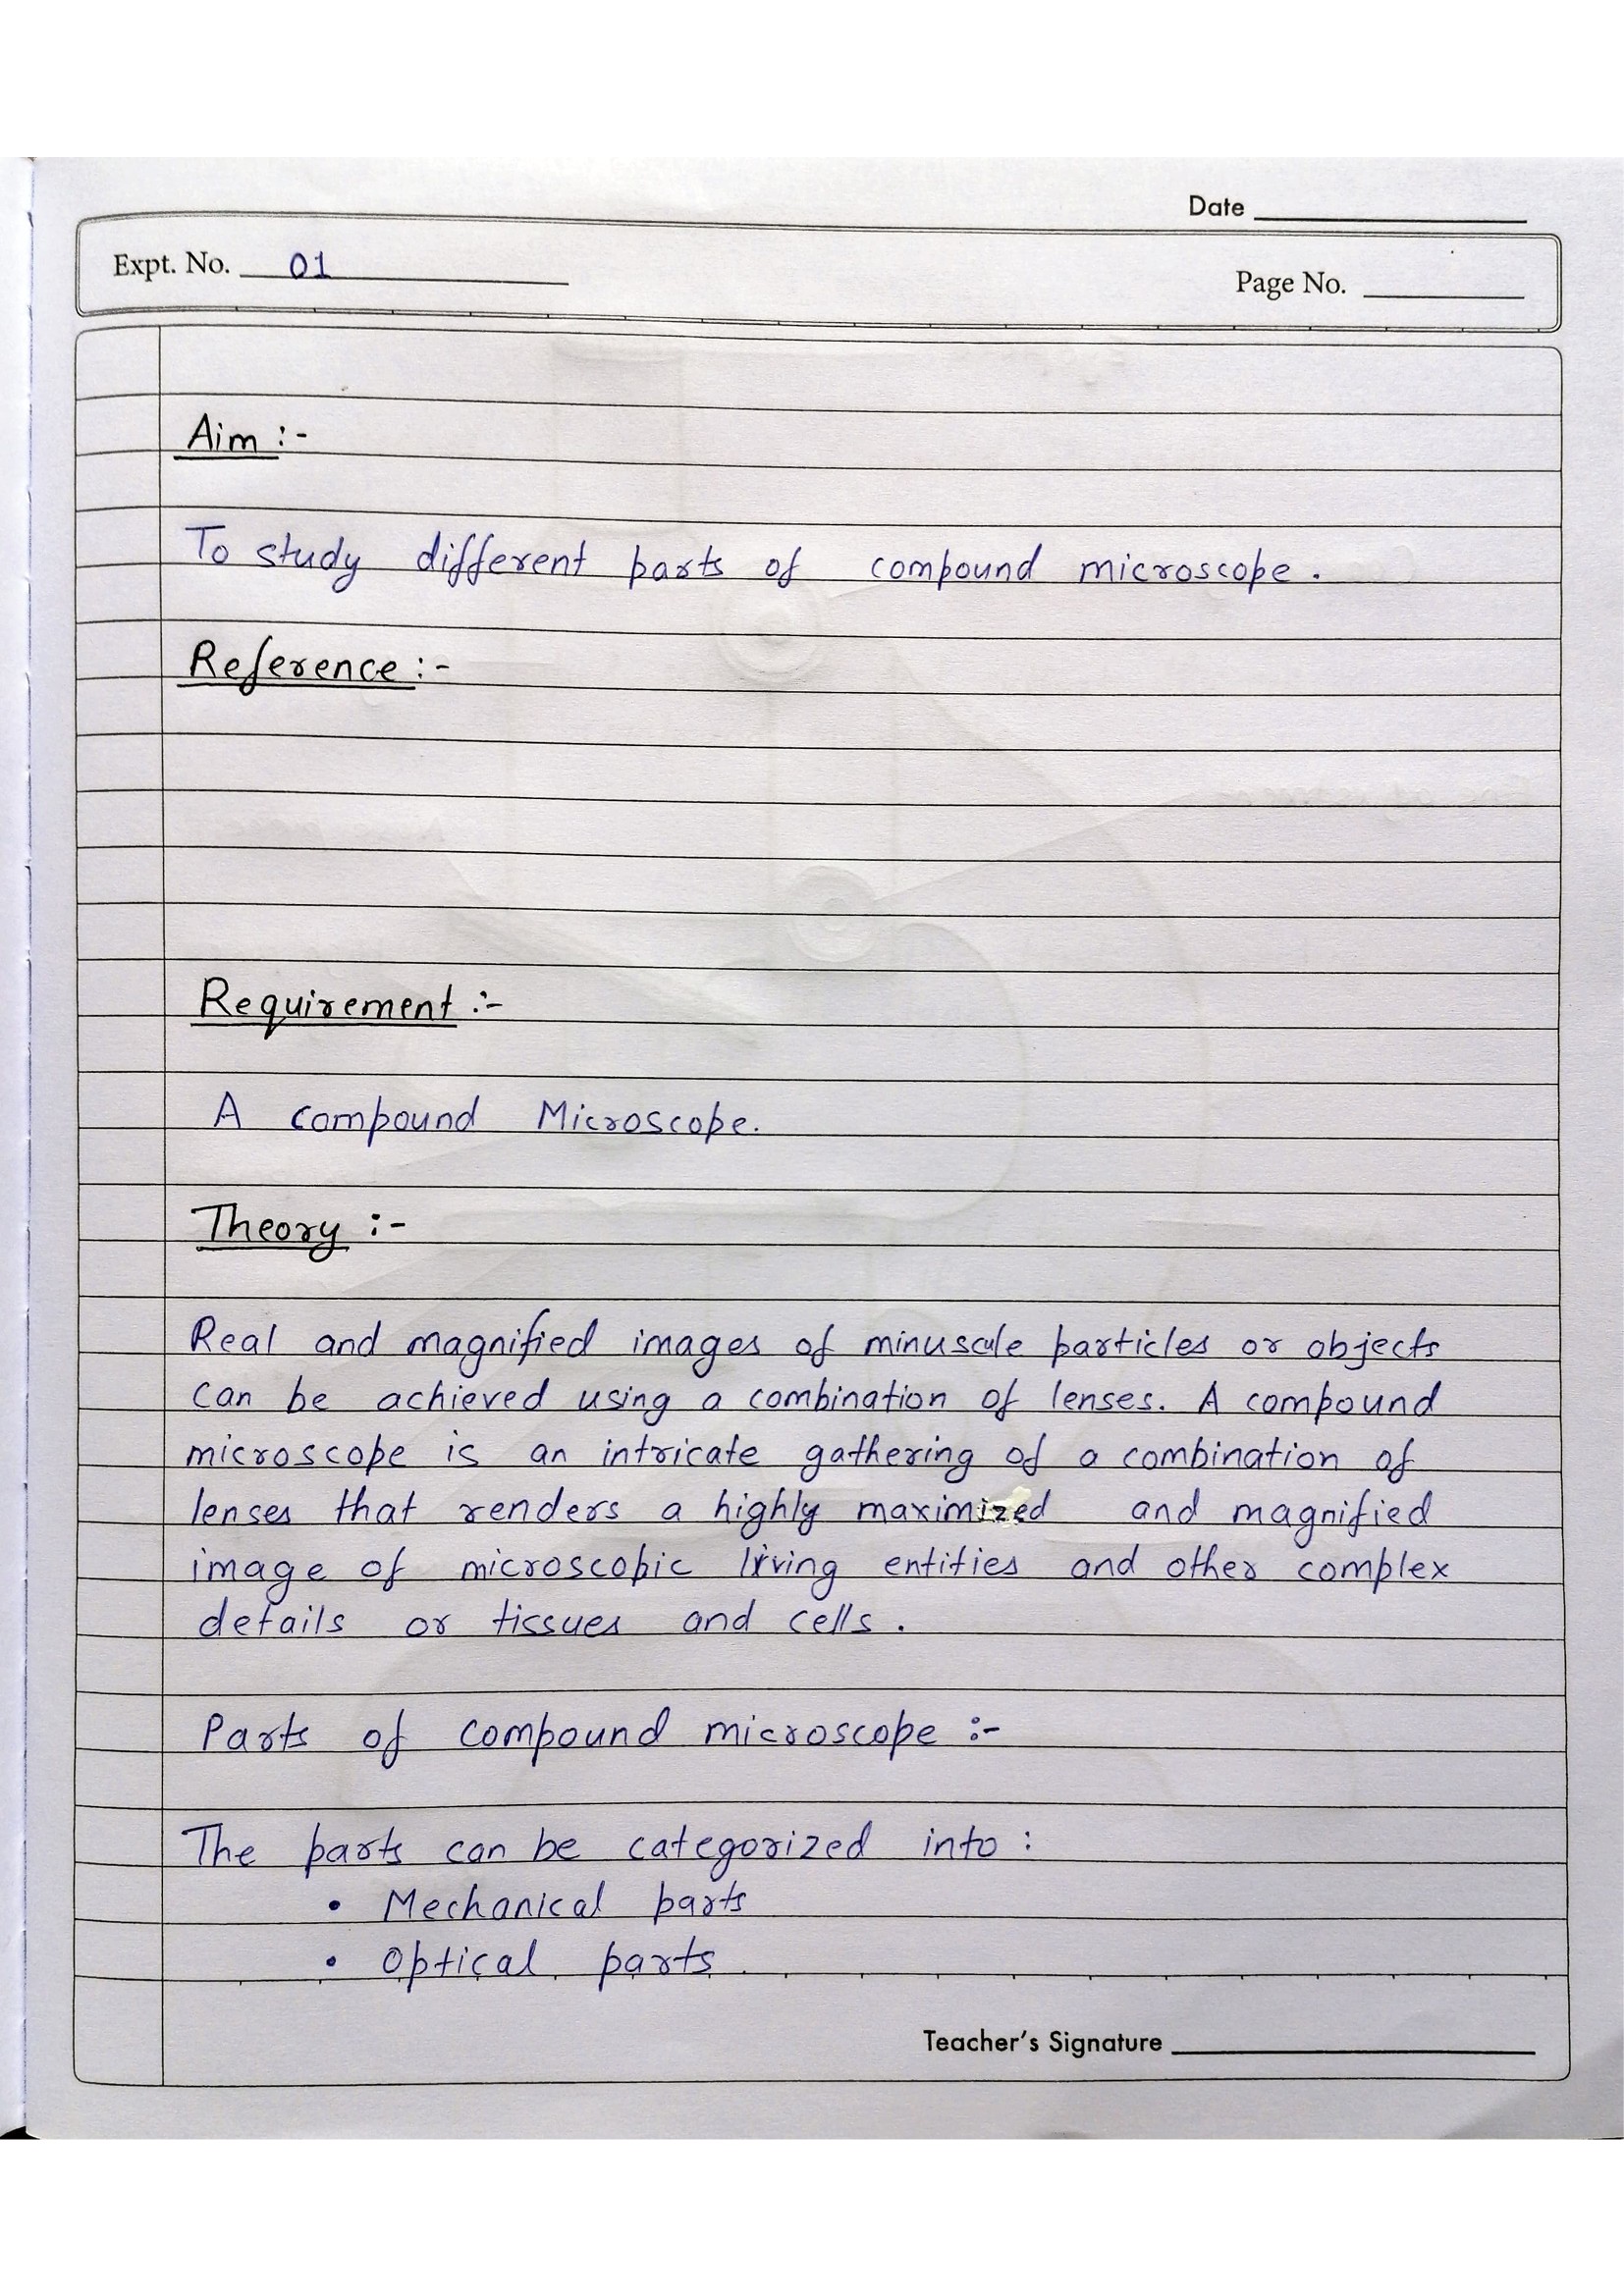 Date
Expt. No. 01
Page No.
Aim :-
To study different parts of compound microscope.
Reference :-
Requirement :-
A compound Microscope.
Theory :-
Real and magnified images of minuscule particles or objects
can be achieved using a combination of lenses. A compound
microscope is an intricate gathering of a combination of
lenses that renders a highly maximized and magnified
image of microscopic living entities and other complex
details or tissues and cells.
Parts of compound microscope :-
The parts can be categorized into :
• Mechanical parts
• Optical parts.
Teacher's Signature